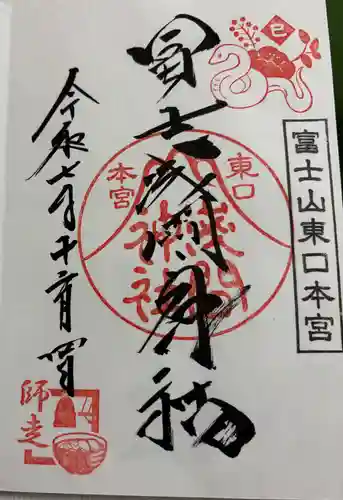 巳
富士山東口本宮
冨士浅間神社
東口
本宮
淺間
神社
令和七年十二月
師走